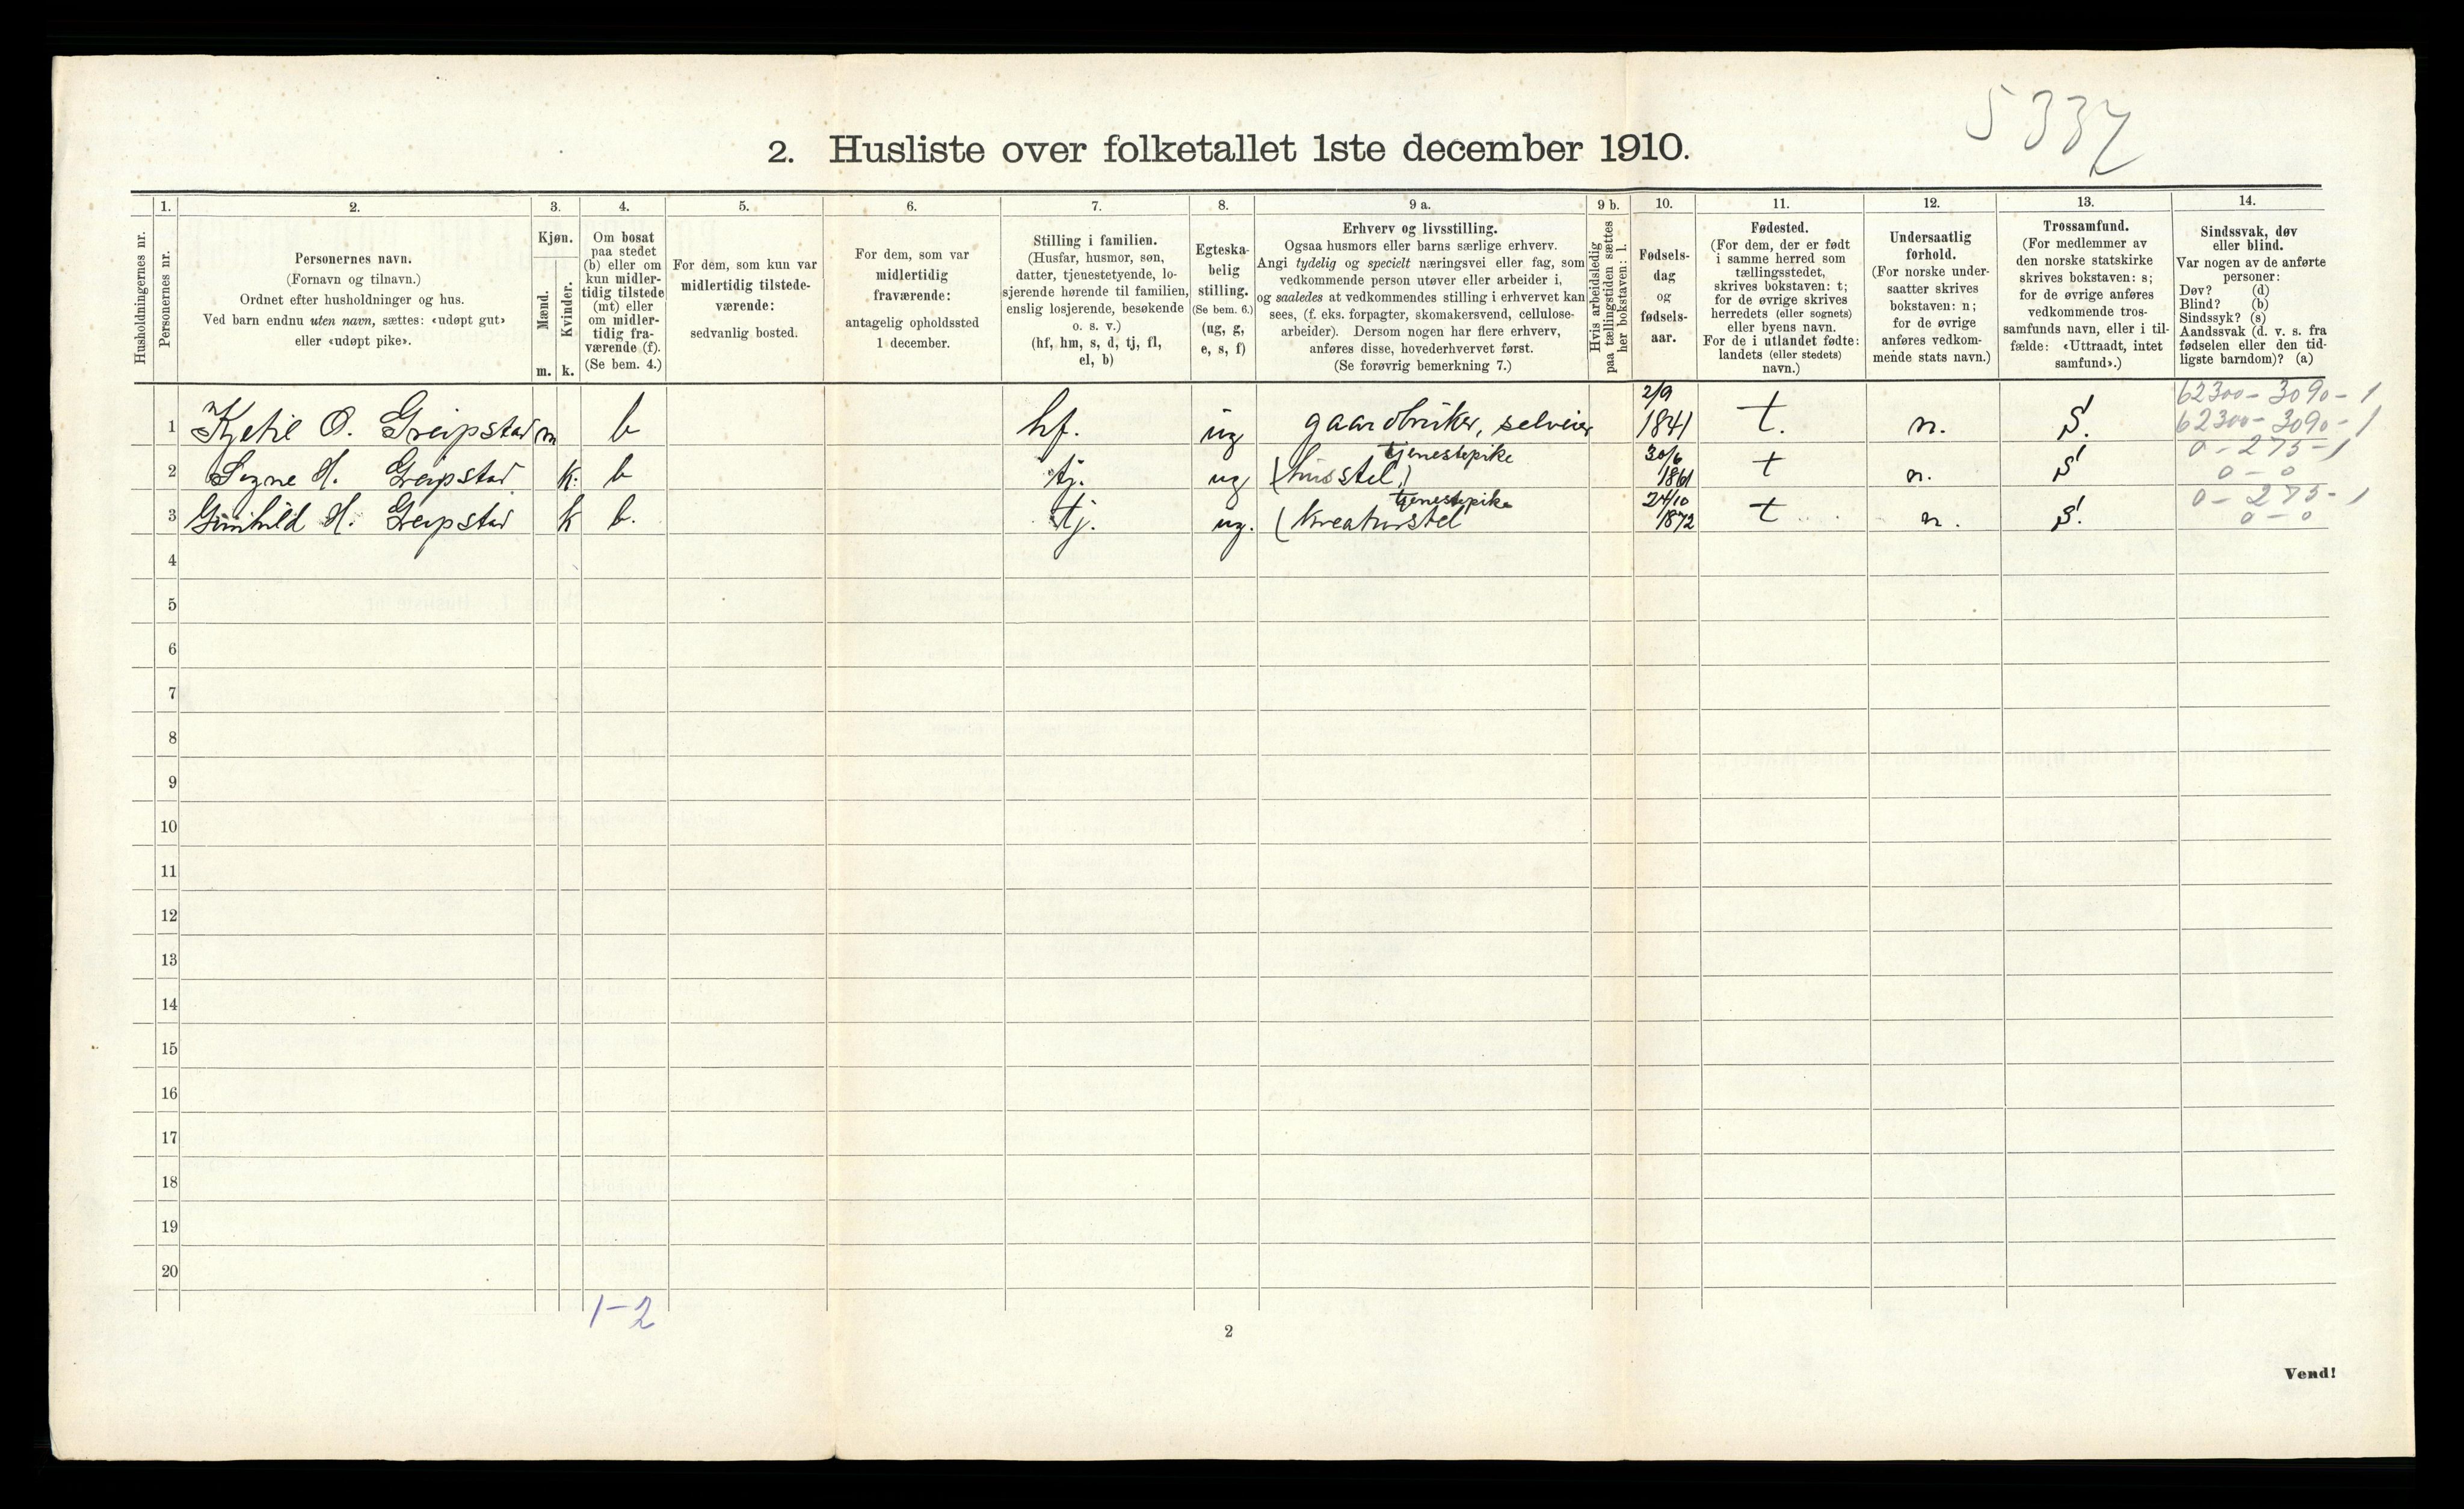 5337
2. Husliste over folketallet 1ste december 1910.
Husholdningernes nr.
1.
Personernes nr.
2.
Personernes navn.
(Fornavn og tilnavn.)
Ordnet efter husholdninger og hus.
Ved barn endnu uten navn, sættes: «udøpt gut»
eller «udøpt pike».
3.
Kjøn.
Mænd.
Kvinder.
m. k.
4.
Om bosat
paa stedet
(b) eller om
kun midler-
tidig tilstede
(mt) eller
om midler-
tidig fra-
værende (f).
(Se bem. 4.)
5.
For dem, som kun var
midlertidig tilstede-
værende:
sedvanlig bosted.
6.
For dem, som var
midlertidig
fraværende:
antagelig opholdssted
1 december.
7.
Stilling i familien.
(Husfar, husmor, søn,
datter, tjenestetyende, lo-
sjerende hørende til familien,
enslig losjerende, besøkende
o. s. v.)
(hf, hm, s, d, tj, fl,
el, b)
8.
Egteska-
belig
stilling.
(Se bem. 6.)
(ug, g,
e, s, f)
9 a.
Erhverv og livsstilling.
Ogsaa husmors eller barns særlige erhverv.
Angi tydelig og specielt næringsvei eller fag, som
vedkommende person utøver eller arbeider i,
og saaledes at vedkommendes stilling i erhvervet kan
sees, (f. eks. forpagter, skomakersvend, cellulose-
arbeider). Dersom nogen har flere erhverv,
anføres disse, hovederhvervet først.
(Se forøvrig bemerkning 7.)
9 b.
Hvis arbeidsledig
paa tællingstiden sættes
her bokstaven: l.
10.
Fødsels-
dag
og
fødsels-
aar.
11.
Fødested.
(For dem, der er født
i samme herred som
tællingsstedet,
skrives bokstaven: t;
for de øvrige skrives
herredets (eller sognets)
eller byens navn.
For de i utlandet fødte:
landets (eller stedets)
navn.)
12.
Undersaatlig
forhold.
(For norske under-
saatter skrives
bokstaven: n;
for de øvrige
anføres vedkom-
mende stats navn.)
13.
Trossamfund.
(For medlemmer av
den norske statskirke
skrives bokstaven: s;
for de øvrige anføres
vedkommende tros-
samfunds navn, eller i til-
fælde: «Uttraadt, intet
samfund».)
14.
Sindssvak, døv
eller blind.
Var nogen av de anførte
personer:
Døv? (d)
Blind? (b)
Sindssyk? (s)
Aandssvak (d. v. s. fra
fødselen eller den tid-
ligste barndom)? (a)
1 Kjetil O. Greipstad m b hf. ug gaardbruker, selveier 2/9 1841 t. n. S. 62300-3090-1
62300-3090-1
2 Signe H. Greipstad k. b tj. ug (husstel) tjenestepike 30/6 1861 t n. S 0-275-1
0-0
3 Gunhild H. Greipstad k b. tj. ug. (kreaturstel tjenestepike 24/10 1872 t n. S. 0-275-1
0-0
4
5
6
7
8
9
10
11
12
13
14
15
16
17
18
19
20
1-2
2
Vend!